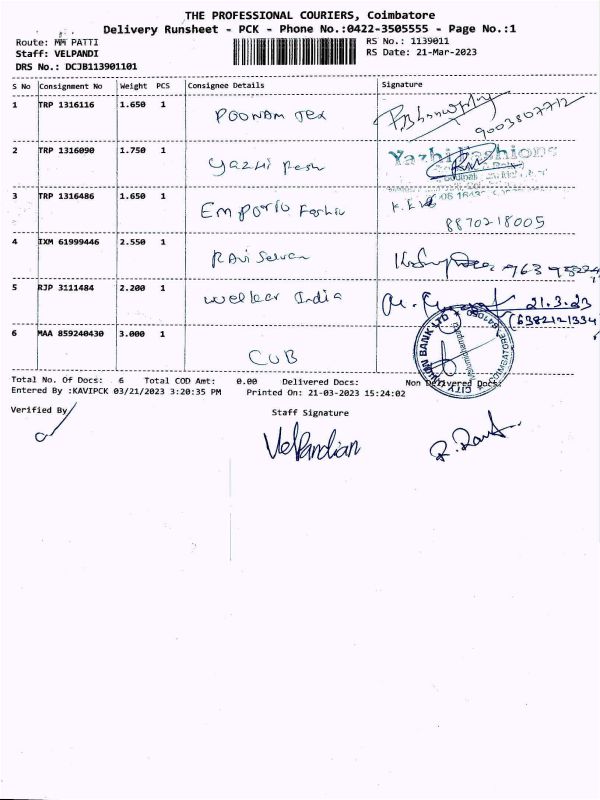 THE PROFESSIONAL COURIERS, Coimbatore
Delivery Runsheet - PCK - Phone No.:0422-3505555 - Page No.:1
Route: MM PATTI
RS No.: 1139011
Staff: VELPANDI
RS Date: 21-Mar-2023
DRS No.: DCJB113901101
S No Consignment No Weight PCS Consignee Details Signature
1 TRP 1316116 1.650 1 POONAM Tex
9003807712
2 TRP 1316090 1.750 1 Yazhi Fash
Yazhi Fashions
3 TRP 1316486 1.650 1 Emporio Fashiu
8870218005
4 IXM 61999446 2.550 1 RAvi Selvan
5 RJP 3111484 2.200 1 Welkar India
21.3.23
(6382121334
6 MAA 859240430 3.000 1 CUB
CITY UNION BANK LTD
COIMBATORE
Total No. Of Docs: 6 Total COD Amt: 0.00 Delivered Docs: Non Delivered Docs:
Entered By :KAVIPCK 03/21/2023 3:20:35 PM Printed On: 21-03-2023 15:24:02
Verified By
Staff Signature
VelPandian